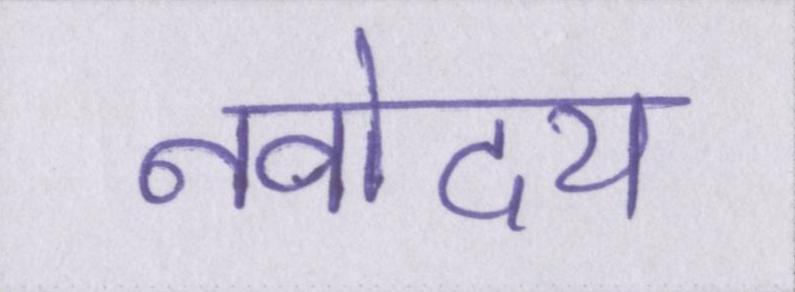 नवोदय